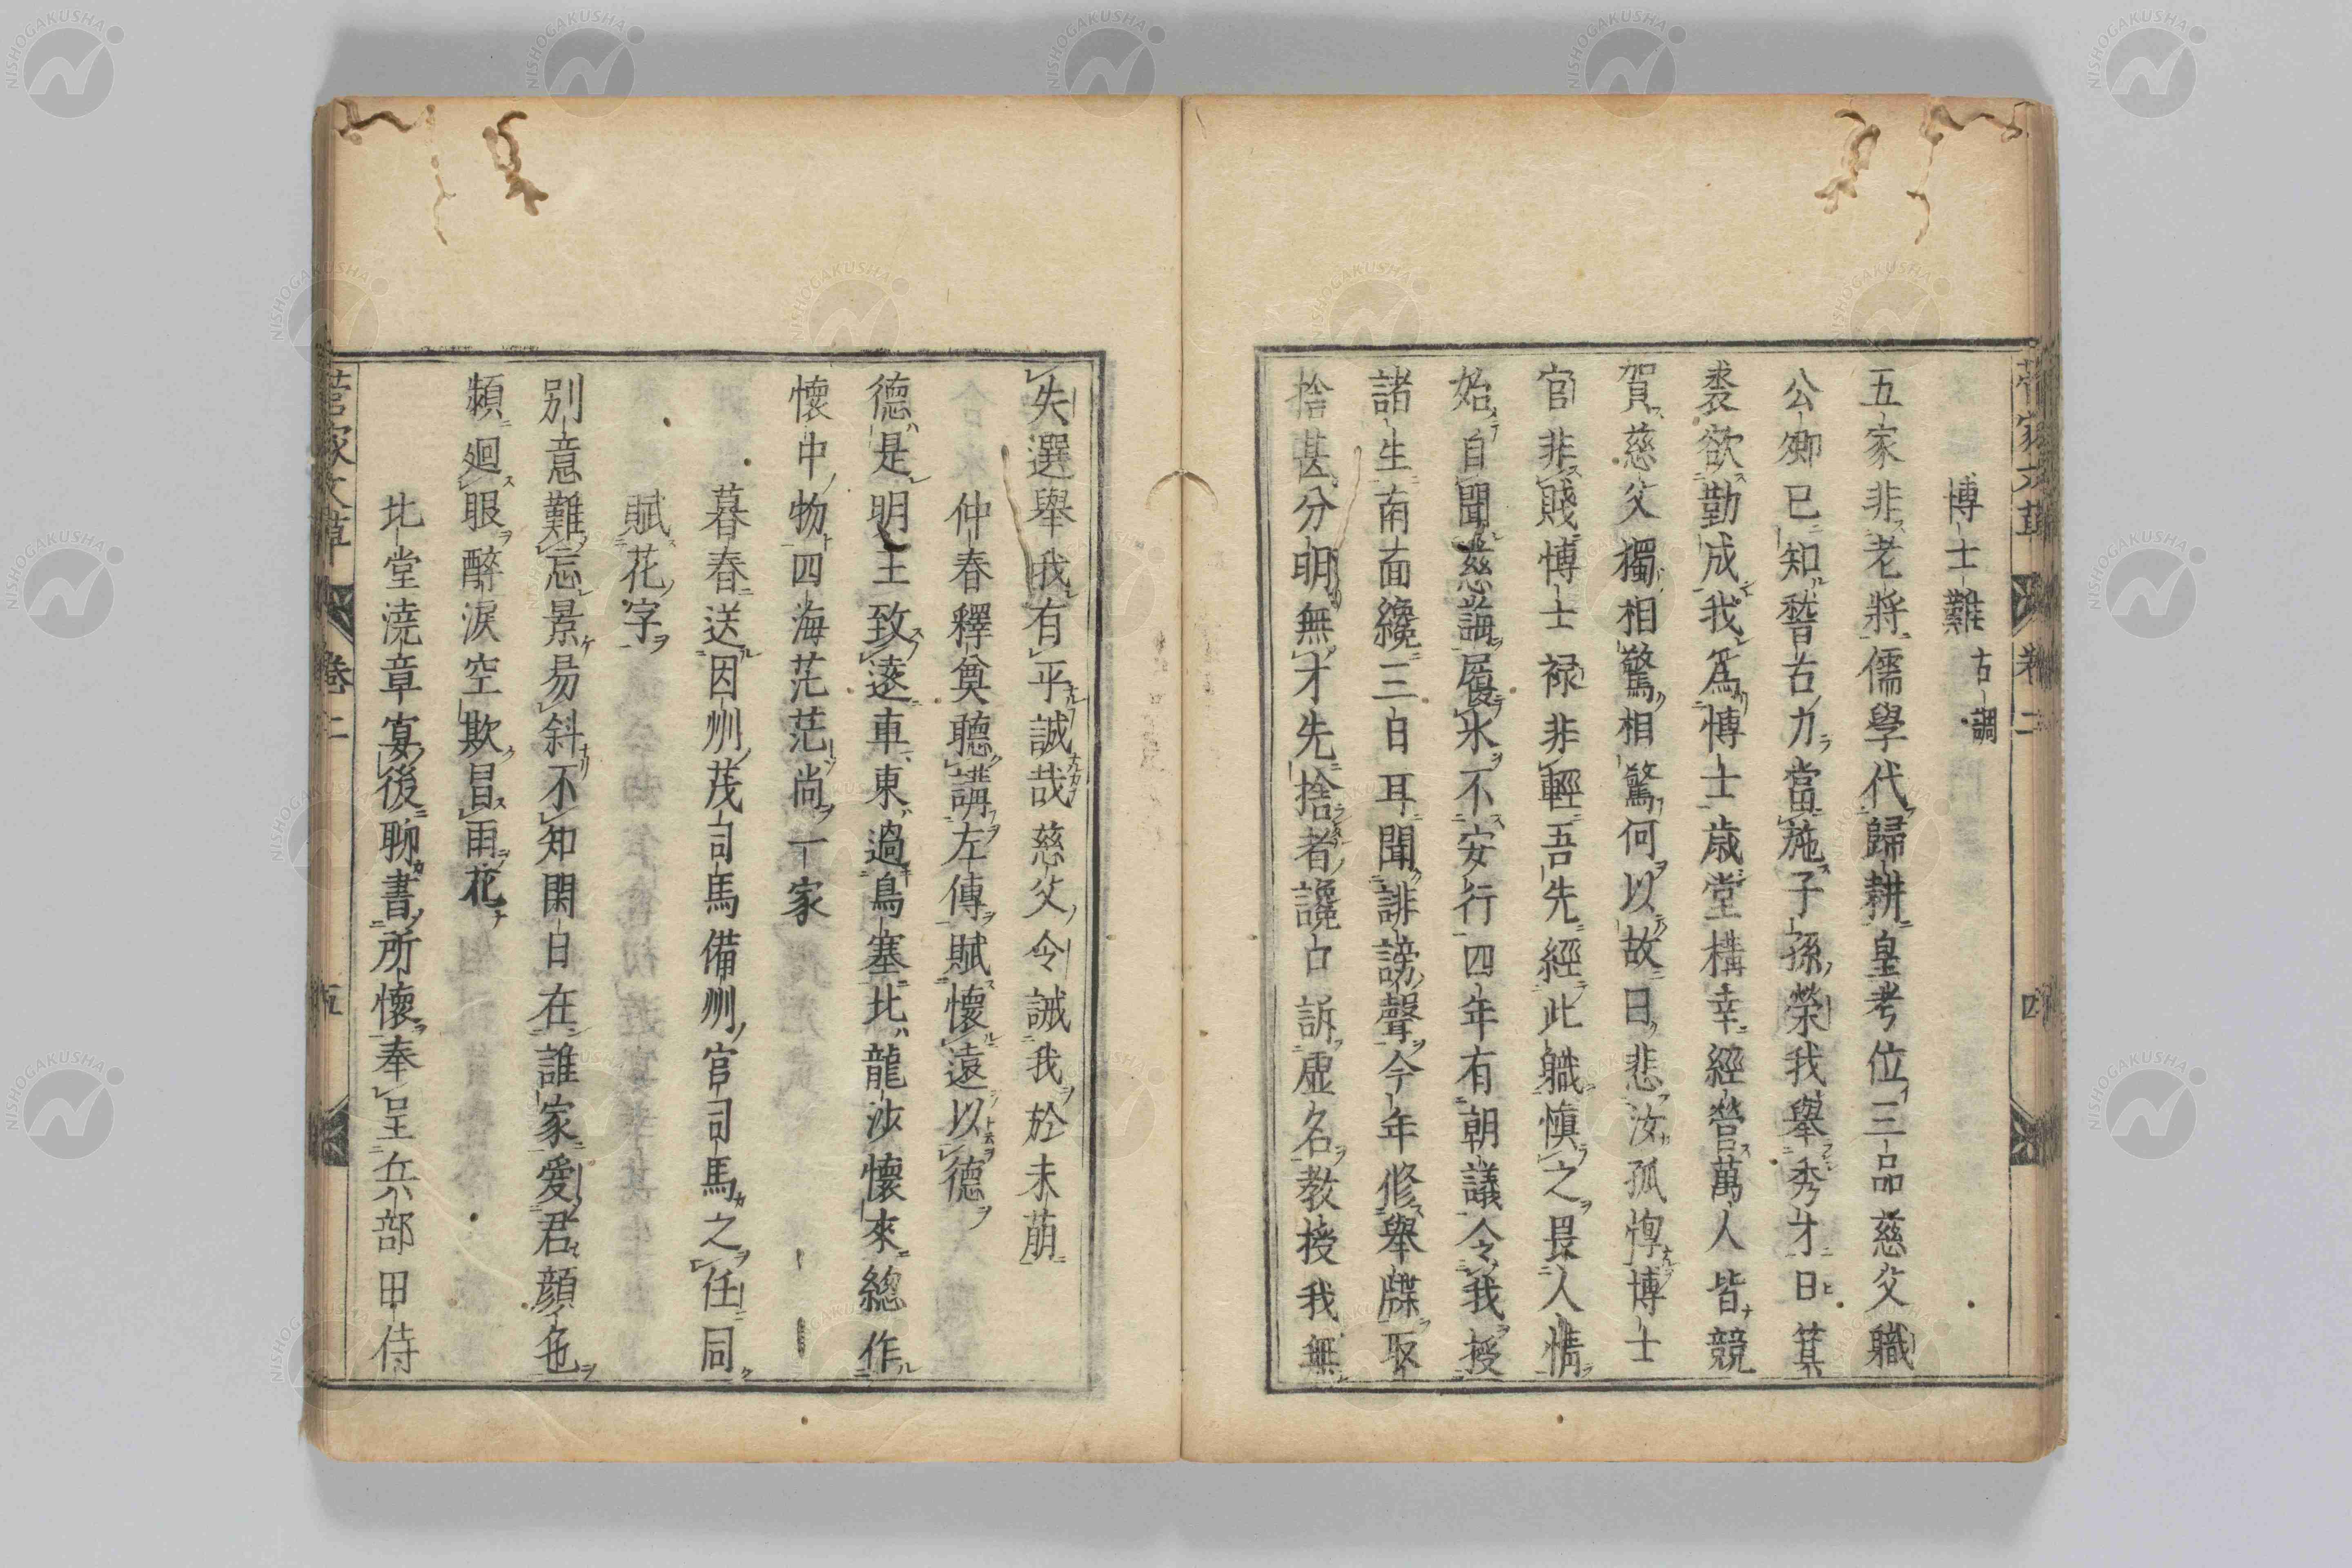 博士難 古調
五家非老將儒學代歸耕皇考位三品慈父職
公卿已知稽古力當施子孫榮我舉秀才日箕
裘欲勤成我爲博士歳堂構幸經營萬人皆競
賀慈父獨相驚相驚何以故曰悲汝孤惸博士
官非賤博士禄非輕吾先經此職慎之畏人情
始自聞慈誨履氷不安行四年有朝議令我授
諸生南面纔三日耳聞誹謗聲今年修舉牒取
捨甚分明無才先捨者讒口訴虚名教授我無
失選舉我有平誠哉慈父令誡我於未萠
仲春釋奠聽講左傳賦懷遠以德
德是明王致遠車東過鳥塞北龍沙懷來總作
懷中物四海茫茫尚一家
暮春送因州茂司馬備州官司馬之任同
賦花字
別意難忘景易斜不知閑日在誰家愛君顔色
頻廻眼醉淚空欺冒雨花
北堂澆章宴後聊書所懷奉呈兵部甲侍
菅家文草 卷二 四
菅家文草 卷二 五
NISHOGAKUSHA